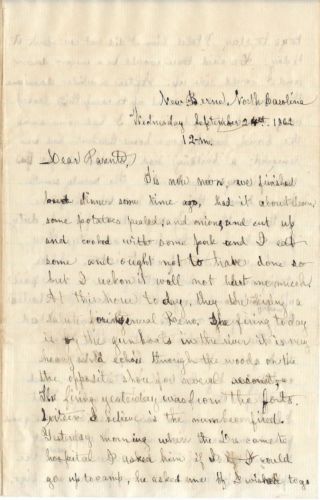 New Berne, North Carolina
Wednesday September 24th, 1862
12 m.
Dear Parents,
Tis now noon, we finished
dinner some time ago, had it about clean,
some potatoes pealed, and onions, and cut up
and cooked with some pork and I eat
some and ought not to have done so
but I reckon it will not hurt me much.
At this hour today, they are firing a
salute for General Reno. The firing today
is by the gun boats in the river it is very
heavy and echoes through the woods on the
the opposite shore for several
The firing yesterday was from the forts.
Sixteen I believe is the number fired.
Yesterday morning when the Dr came to
hospital I asked him if I could
go up to camp, he asked me if I wished to go